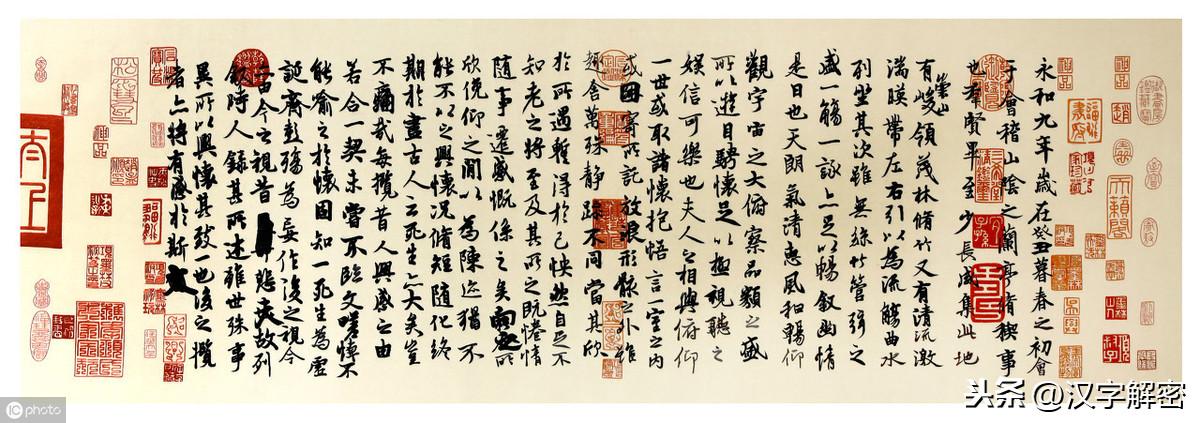 永和九年歲在癸丑暮春之初會
于會稽山陰之蘭亭脩稧事
也羣賢畢至少長咸集此地
有崇山峻領茂林脩竹又有清流激
湍暎帶左右引以為流觴曲水
列坐其次雖無絲竹管弦之
盛一觴一詠亦足以暢敘幽情
是日也天朗氣清惠風和暢仰
觀宇宙之大俯察品類之盛
所以遊目騁懷足以極視聽之
娛信可樂也夫人之相與俯仰
一世或取諸懷抱悟言一室之內
或因寄所託放浪形骸之外雖
趣舍萬殊靜躁不同當其欣
於所遇暫得於己怏然自足不
知老之將至及其所之既惓情
隨事遷感慨係之矣向之所
欣俛仰之閒以為陳迹猶不
能不以之興懷況脩短隨化終
期於盡古人云死生亦大矣豈
不痛哉每攬昔人興感之由
若合一契未嘗不臨文嗟悼不
能喻之於懷固知一死生為虛
誕齊彭殤為妄作後之視今
亦由今之視昔悲夫故列
敘時人錄其所述雖世殊事
異所以興懷其致一也後之攬
者亦將有感於斯文
头条 @汉字解密
iC photo